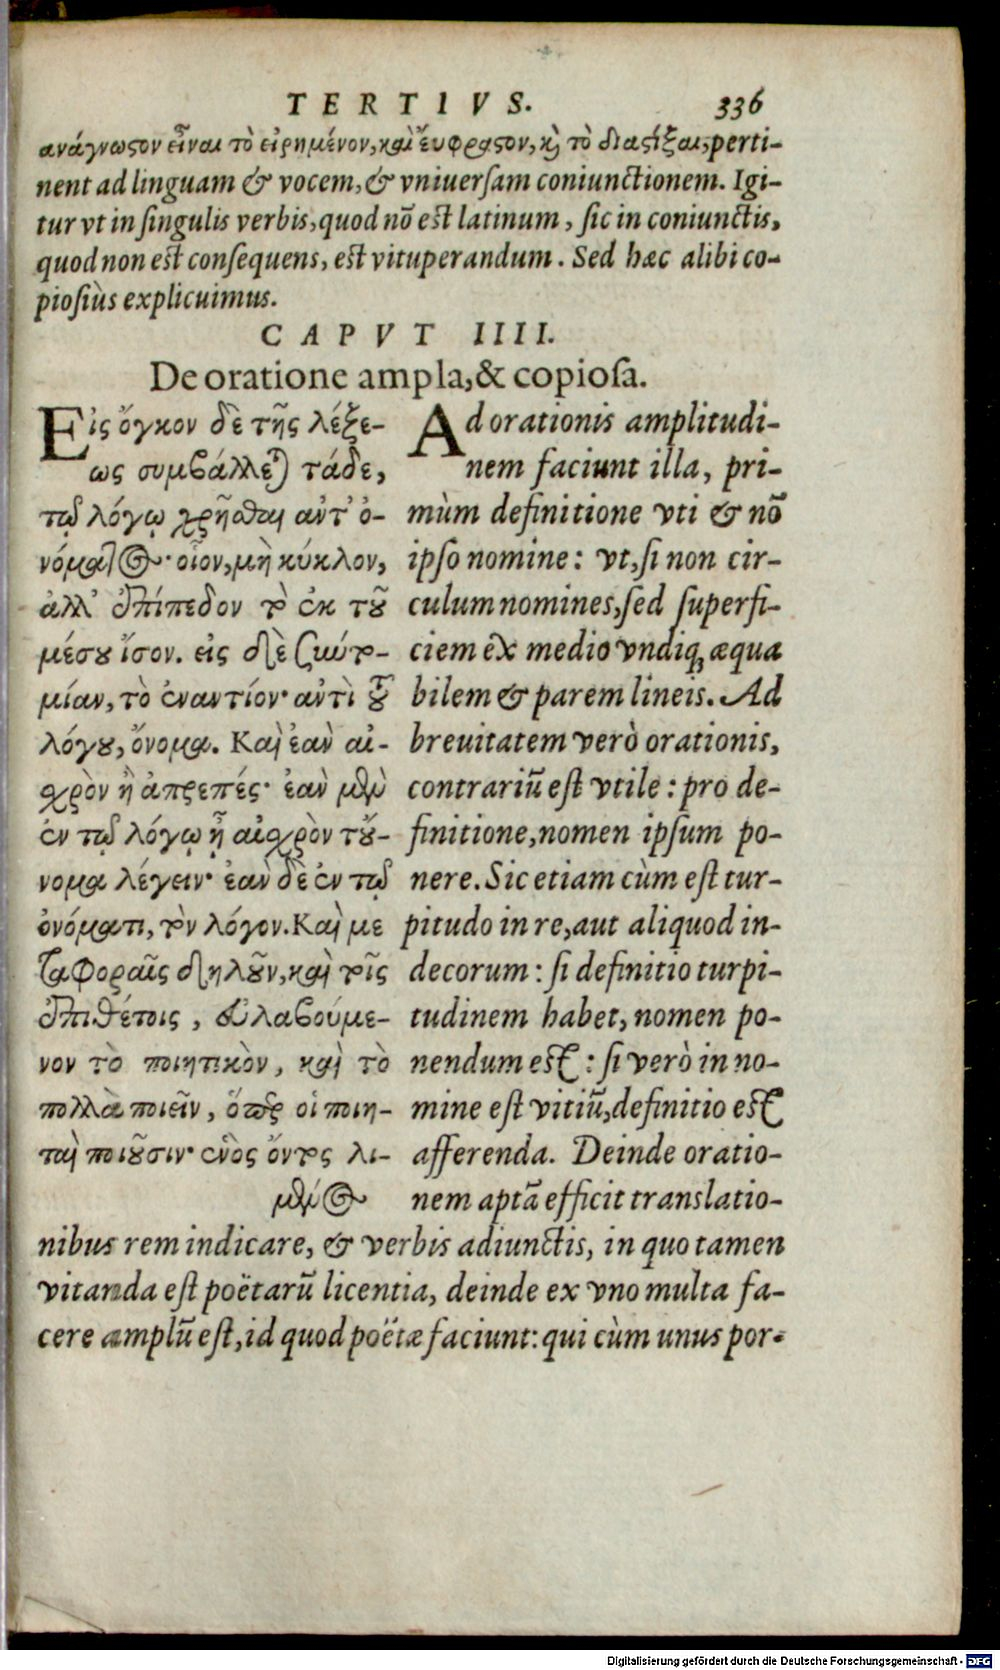 TERTIVS. 336
ανάγνωστον εἶναι τὸ εἰρημένον, καὶ ἔυφραστον, κὶ τὸ διαστίξαι, perti-
nent ad linguam & vocem, & vniuersam coniunctionem. Igi-
tur vt in singulis verbis, quod nō est latinum, sic in coniunctis,
quod non est consequens, est vituperandum. Sed hæc alibi co-
piosiùs explicuimus.
CAPVT IIII.
De oratione ampla, & copiosa.
Εἰς ὄγκον δὲ τῆς λέξε-
ως συμβάλλεται τάδε,
τῷ λόγῳ χρῆσθαι ἀντ' ὀ-
νόματος· οἷον, μὴ κύκλον,
ἀλλ' ἐπίπεδον τὸ ἐκ τοῦ
μέσου ἴσον. εἰς δὲ συντο-
μίαν, τὸ ἐναντίον· αὐτὶ τοῦ
λόγου, ὄνομα. Καὶ ἐὰν αἰ-
σχρὸν ἢ ἀπρεπές· ἐὰν μὲν
ἐν τῷ λόγῳ ᾖ αἰσχρὸν τοὔ-
νομα λέγειν· ἐὰν δὲ ἐν τῷ
ὀνόματι, τὸν λόγον. Καὶ με
ταφοραῖς δηλοῦν, καὶ τοῖς
ἐπιθέτοις, εὐλαβούμε-
νον τὸ ποιητικὸν, καὶ τὸ
πολλὰ ποιεῖν, ὅπερ οἱ ποιη-
ταὶ ποιοῦσιν· ἑνὸς ὄντος λι-
μένος
Ad orationis amplitudi-
nem faciunt illa, pri-
mùm definitione vti & nō
ipso nomine: vt, si non cir-
culum nomines, sed superfi-
ciem ex medio vndiq; æqua
bilem & parem lineis. Ad
breuitatem verò orationis,
contrariū est vtile: pro de-
finitione, nomen ipsum po-
nere. Sic etiam cùm est tur-
pitudo in re, aut aliquod in-
decorum: si definitio turpi-
tudinem habet, nomen po-
nendum est: si verò in no-
mine est vitiū, definitio est
afferenda. Deinde oratio-
nem aptā efficit translatio-
nibus rem indicare, & verbis adiunctis, in quo tamen
vitanda est poëtarū licentia, deinde ex vno multa fa-
cere amplū est, id quod poëtæ faciunt: qui cùm unus por-
Digitalisierung gefördert durch die Deutsche Forschungsgemeinschaft - DFG